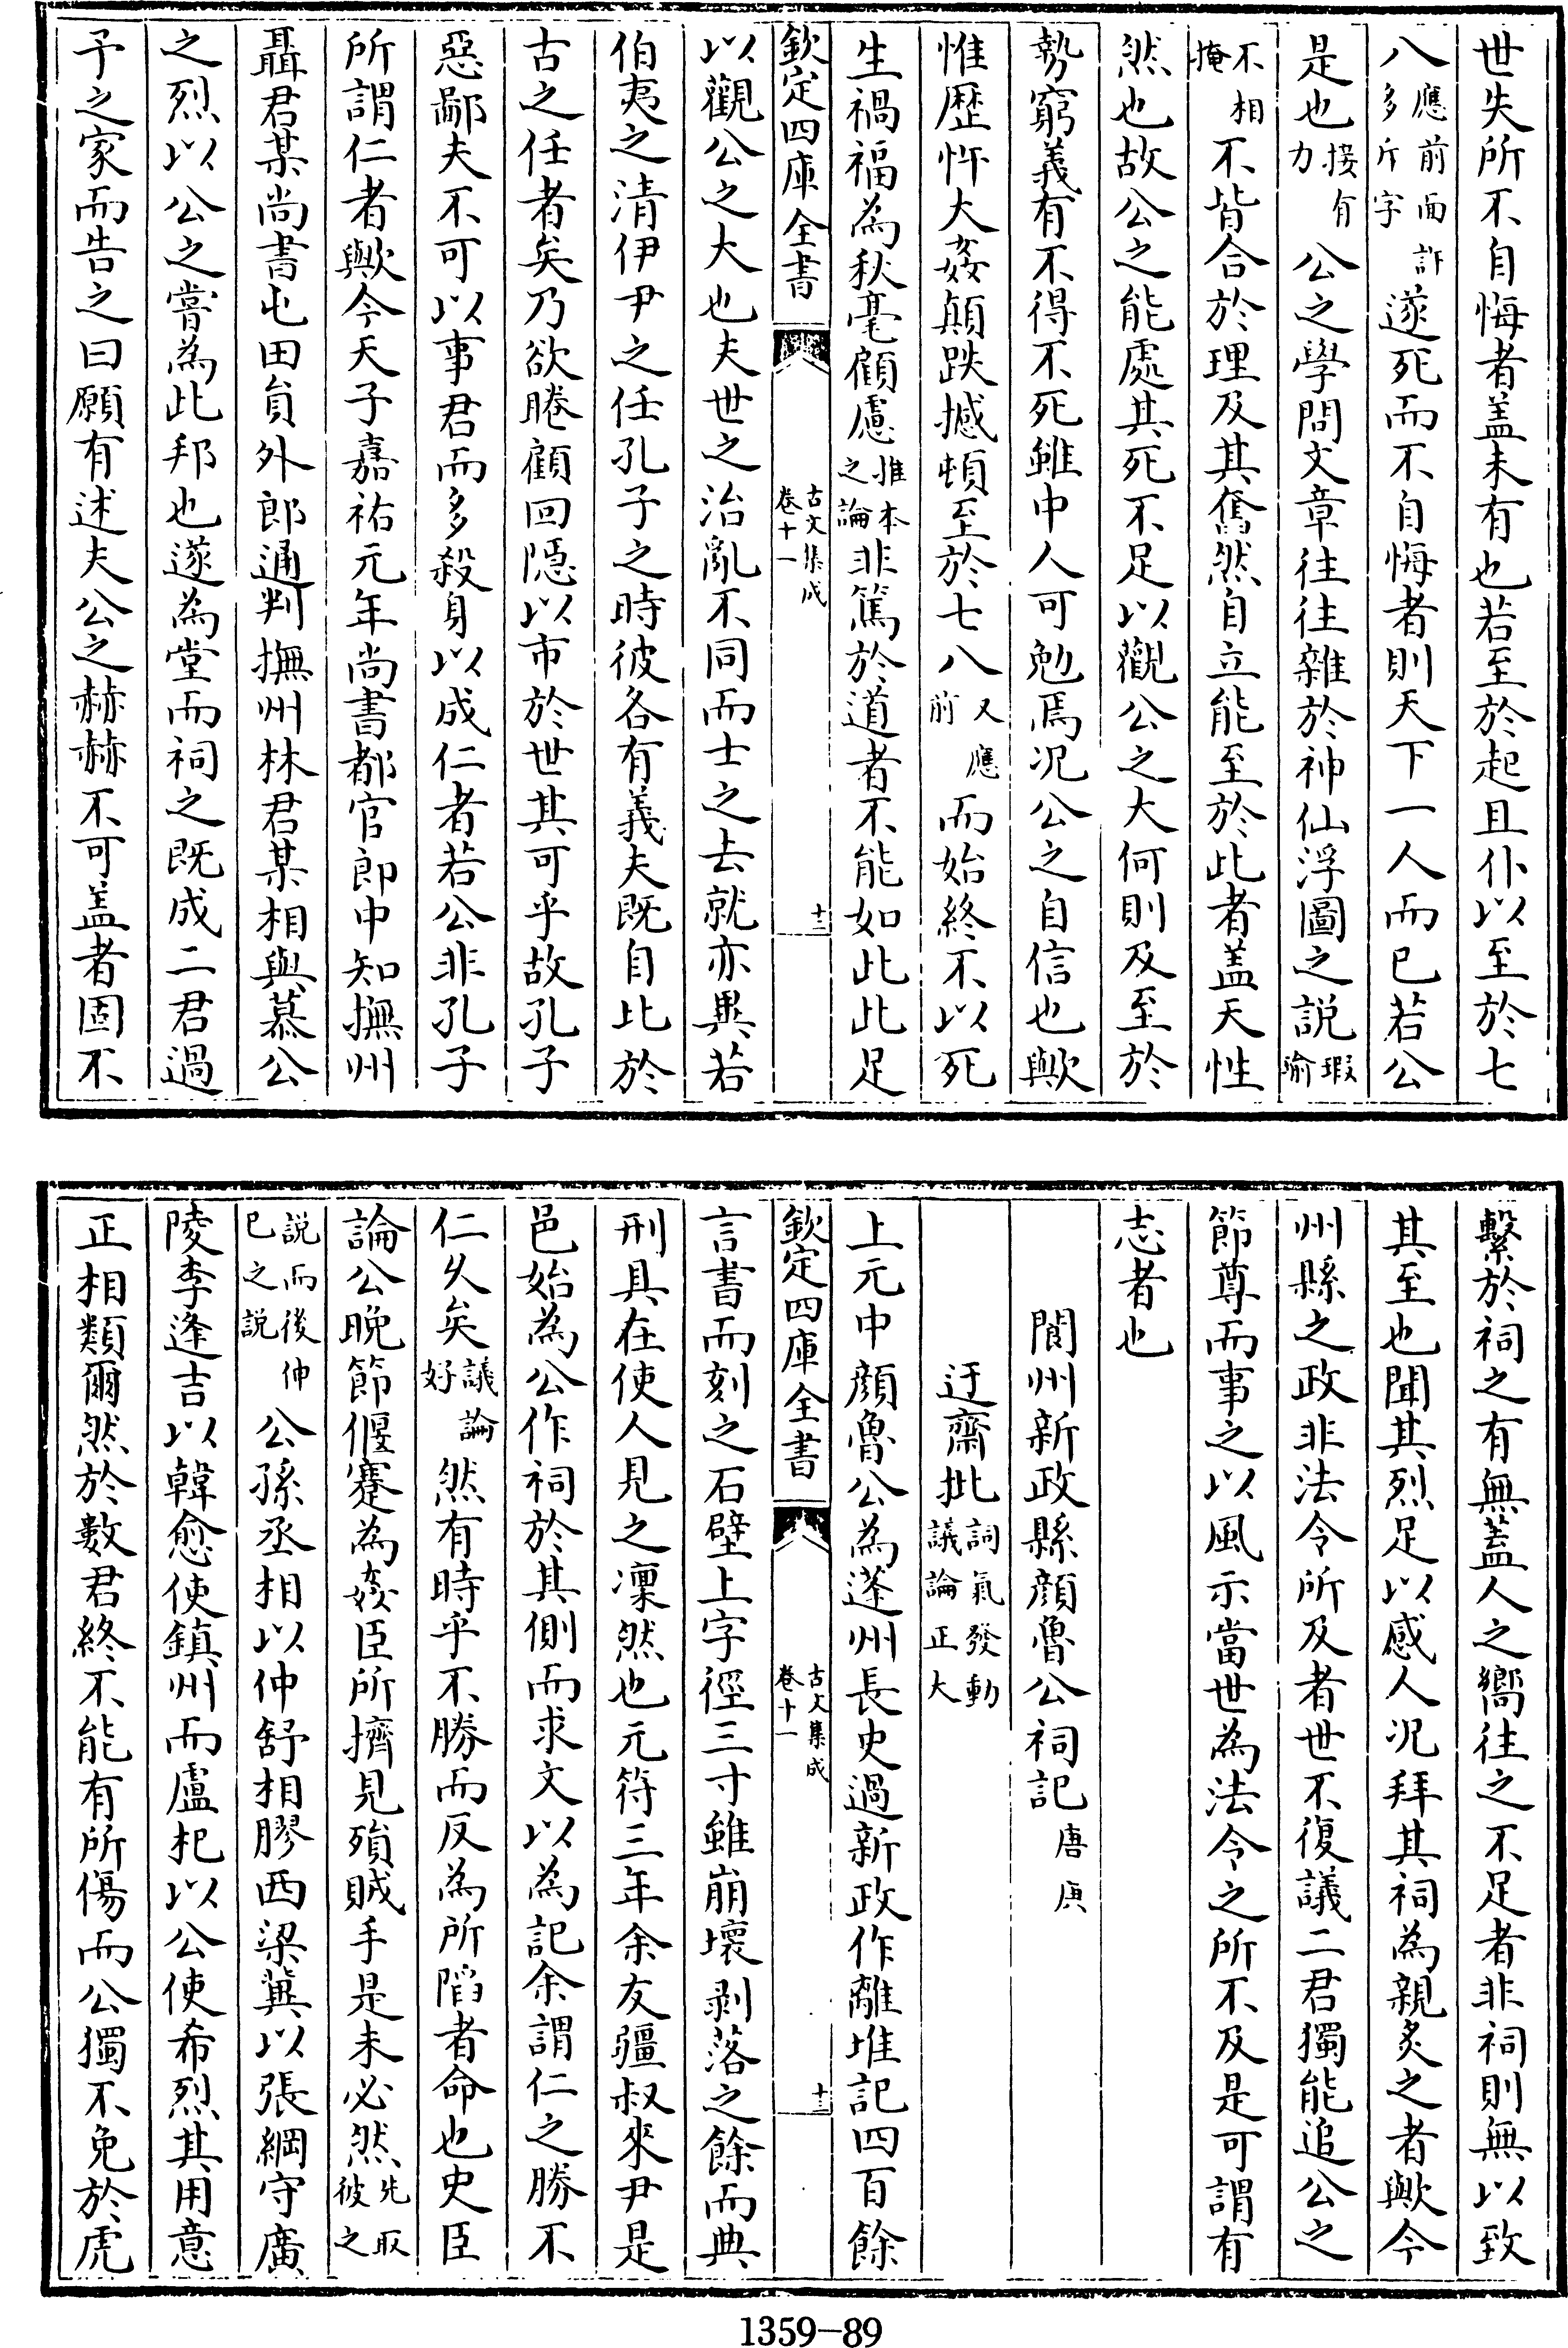 世失所不自悔者盖未有也若至於起且仆以至於七
八應前面許多斤字遂死而不自悔者則天下一人而已若公
是也接有力公之學問文章往往雜於神仙浮圖之説瑕瑜
不相掩不皆合於理及其奮然自立能至於此者盖天性
然也故公之能處其死不足以觀公之大何則及至於
勢窮義有不得不死雖中人可勉焉况公之自信也歟
惟歴忤大姦顛跌撼頓至於七八又應前而始終不以死
生禍福為秋毫顧慮推本之論非篤於道者不能如此此足
欽定四庫全書
古文集成
卷十一
十三
以觀公之大也夫世之治亂不同而士之去就亦異若
伯夷之清伊尹之任孔子之時彼各有義夫既自比於
古之任者矣乃欲睠顧回隠以市於世其可乎故孔子
惡鄙夫不可以事君而多殺身以成仁者若公非孔子
所謂仁者歟今天子嘉祐元年尚書都官郎中知撫州
聶君某尚書屯田貟外郎通判撫州林君某相與慕公
之烈以公之嘗為此邦也遂為堂而祠之既成二君過
予之家而告之曰願有述夫公之赫赫不可盖者固不
繫於祠之有無蓋人之嚮往之不足者非祠則無以致
其至也聞其烈足以感人况拜其祠為親炙之者歟今
州縣之政非法令所及者世不復議二君獨能追公之
節尊而事之以風示當世為法令之所不及是可謂有
志者也
閬州新政縣顔魯公祠記唐庚
迂齋批詞氣發動議論正大
上元中顔魯公為蓬州長史過新政作離堆記四百餘
欽定四庫全書
古文集成
卷十一
十三
言書而刻之石壁上字徑三寸雖崩壞剥落之餘而典
刑具在使人見之凜然也元符三年余友彊叔來尹是
邑始為公作祠於其側而求文以為記余謂仁之勝不
仁乆矣議論好然有時乎不勝而反為所䧟者命也史臣
論公晚節偃蹇為姦臣所擠見殞賊手是未必然先取彼之
説而後伸已之説公孫丞相以仲舒相膠西梁冀以張綱守廣
陵李逢吉以韓愈使鎮州而盧杞以公使希烈其用意
正相類爾然於數君終不能有所傷而公獨不免於虎
1359-89